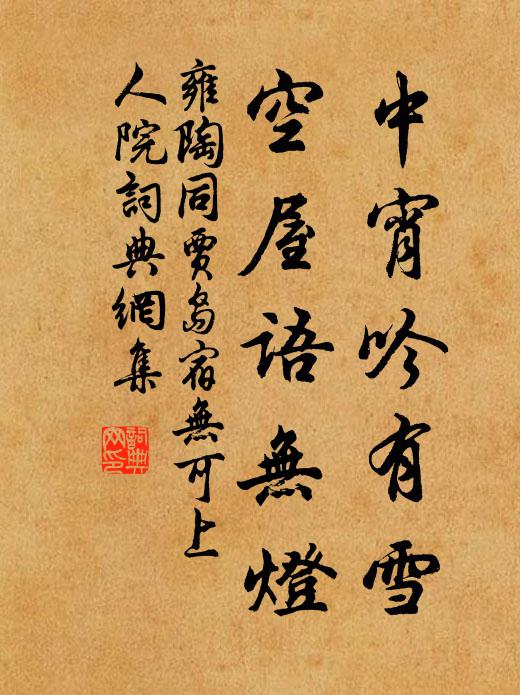 中宵吟有雪
空屋語無燈
雍陶同賈島宿無可上
人院詞典網集
詞典
网印